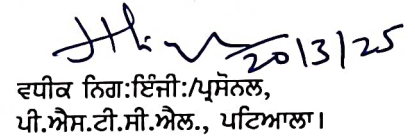 20/3/25
ਵਧੀਕ ਨਿਗ:ਇੰਜੀ:/ਪ੍ਰਸੋਨਲ,
ਪੀ.ਐਸ.ਟੀ.ਸੀ.ਐਲ., ਪਟਿਆਲਾ।